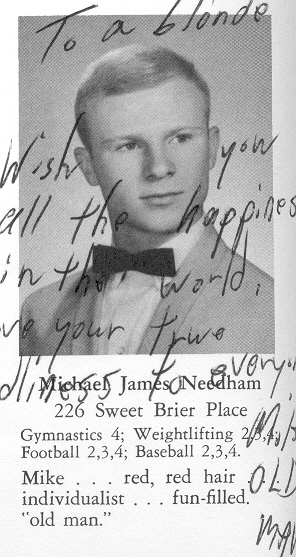 To a blonde
Wish you
all the happines
in the world,
ve your true
dliness to everyo
Michael James Needham
226 Sweet Brier Place
Gymnastics 4; Weightlifting 2,3,4;
Football 2,3,4; Baseball 2,3,4.
Mike . . . red, red hair . . .
individualist . . . fun-filled.
"old man."
OLD
MAN